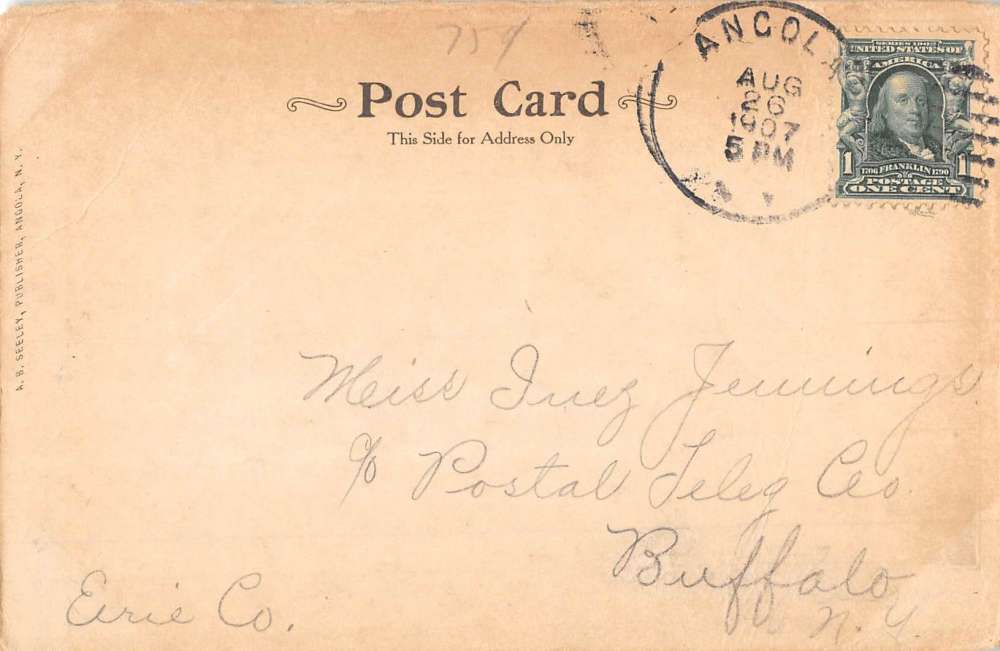 759
Post Card
This Side for Address Only
ANGOLA
AUG
26
1907
5 PM
SERIES 1902
UNITED STATES OF
AMERICA
1 FRANKLIN 1
1706 1790
POSTAGE
ONE CENT
A. B. SEELEY, PUBLISHER, ANGOLA, N. Y.
Miss Inez Jennings
c/o Postal Teleg Co.
Buffalo
N. Y.
Erie Co.